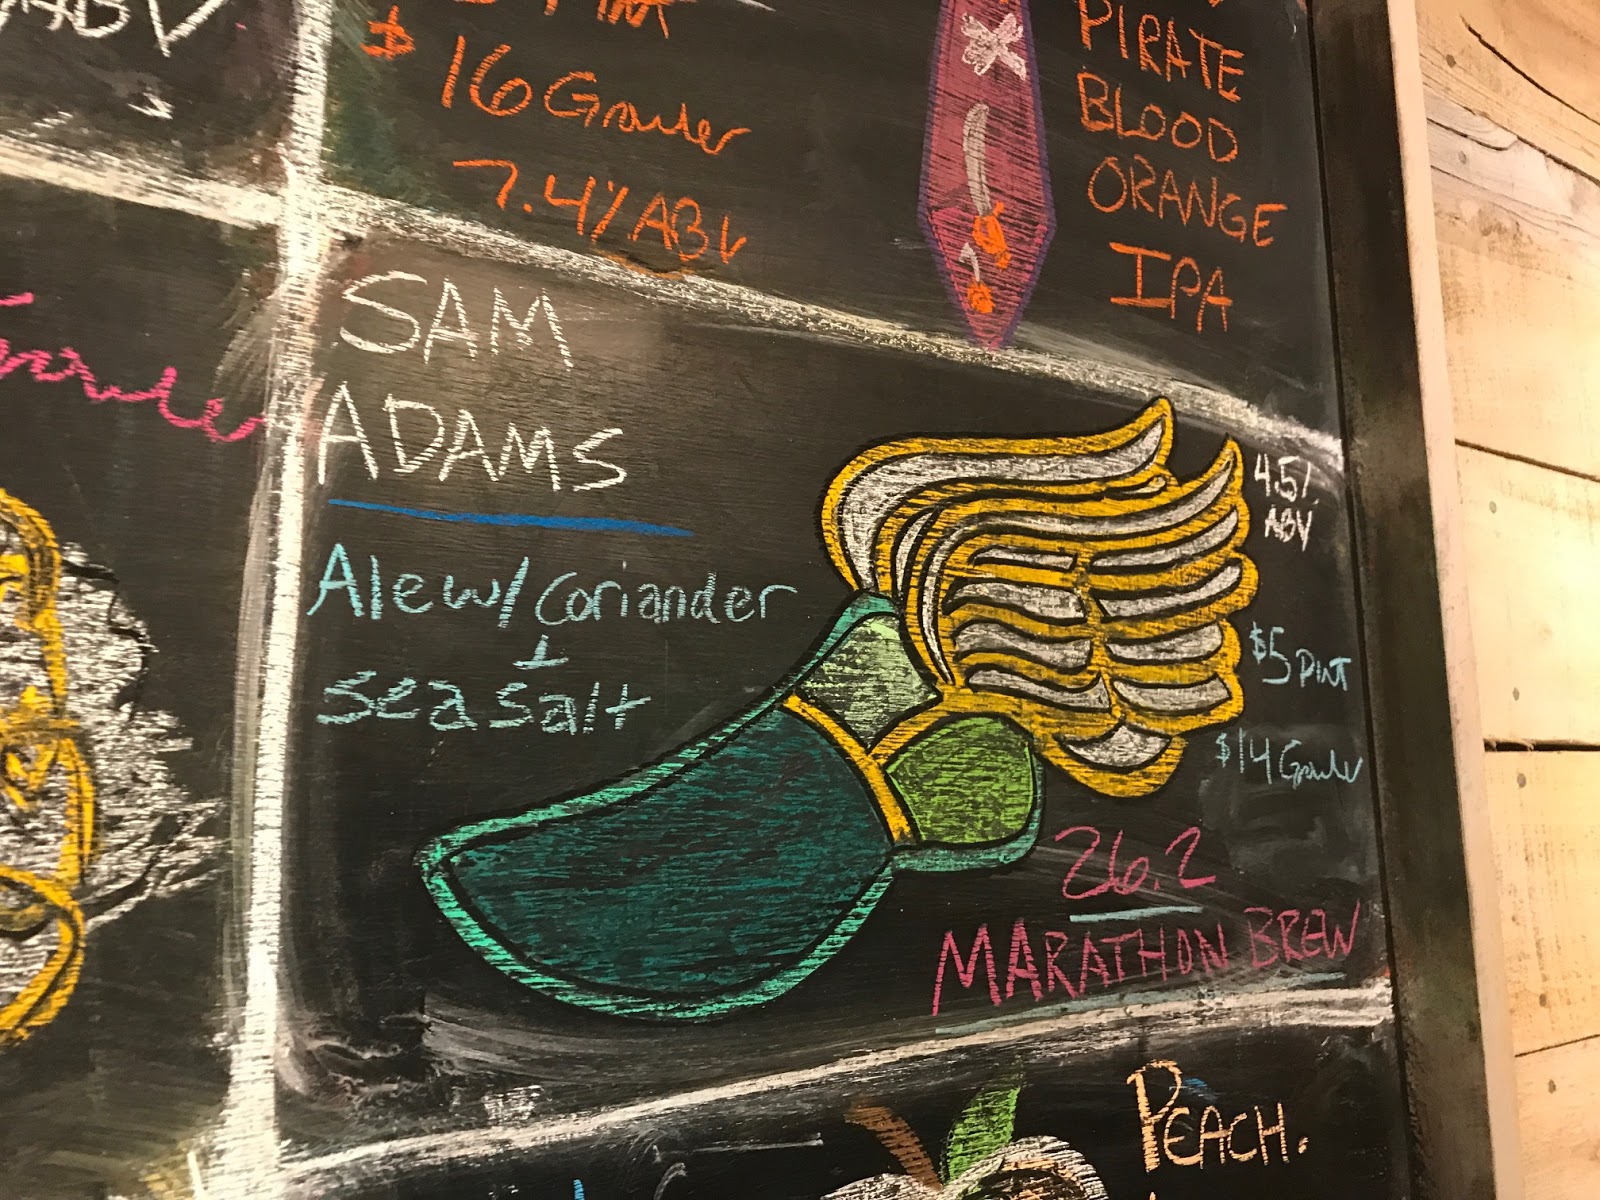 ABV
$
16 Growler
7.4% ABV
PIRATE
BLOOD
ORANGE
IPA
SAM
ADAMS
Ale w/ coriander
+
sea salt
4.5%
ABV
$5 PINT
$14 Growler
26.2
MARATHON BREW
PEACH.